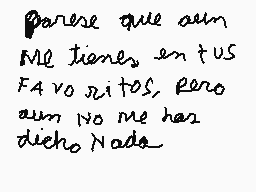 parese que aun
Me tienes en tus
FAVoritos, Pero
aun No me has
dicho Nada